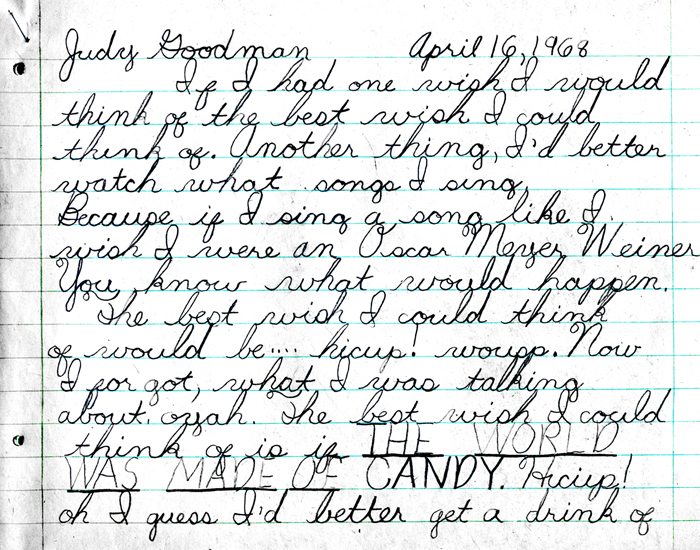 Judy Goodman April 16, 1968
If I had one wish I would
think of the best wish I could
think of. Another thing, I'd better
watch what songs I sing,
Because if I sing a song like I
wish I were an Oscar Meyer Weiner
You know what would happen.
The best wish I could think
of would be.... hicup! woupp. Now
I for got, what I was talking
about. ozah. The best wish I could
think of is if THE WORLD
WAS MADE OF CANDY. Hicup!
oh I guess I'd better get a drink of